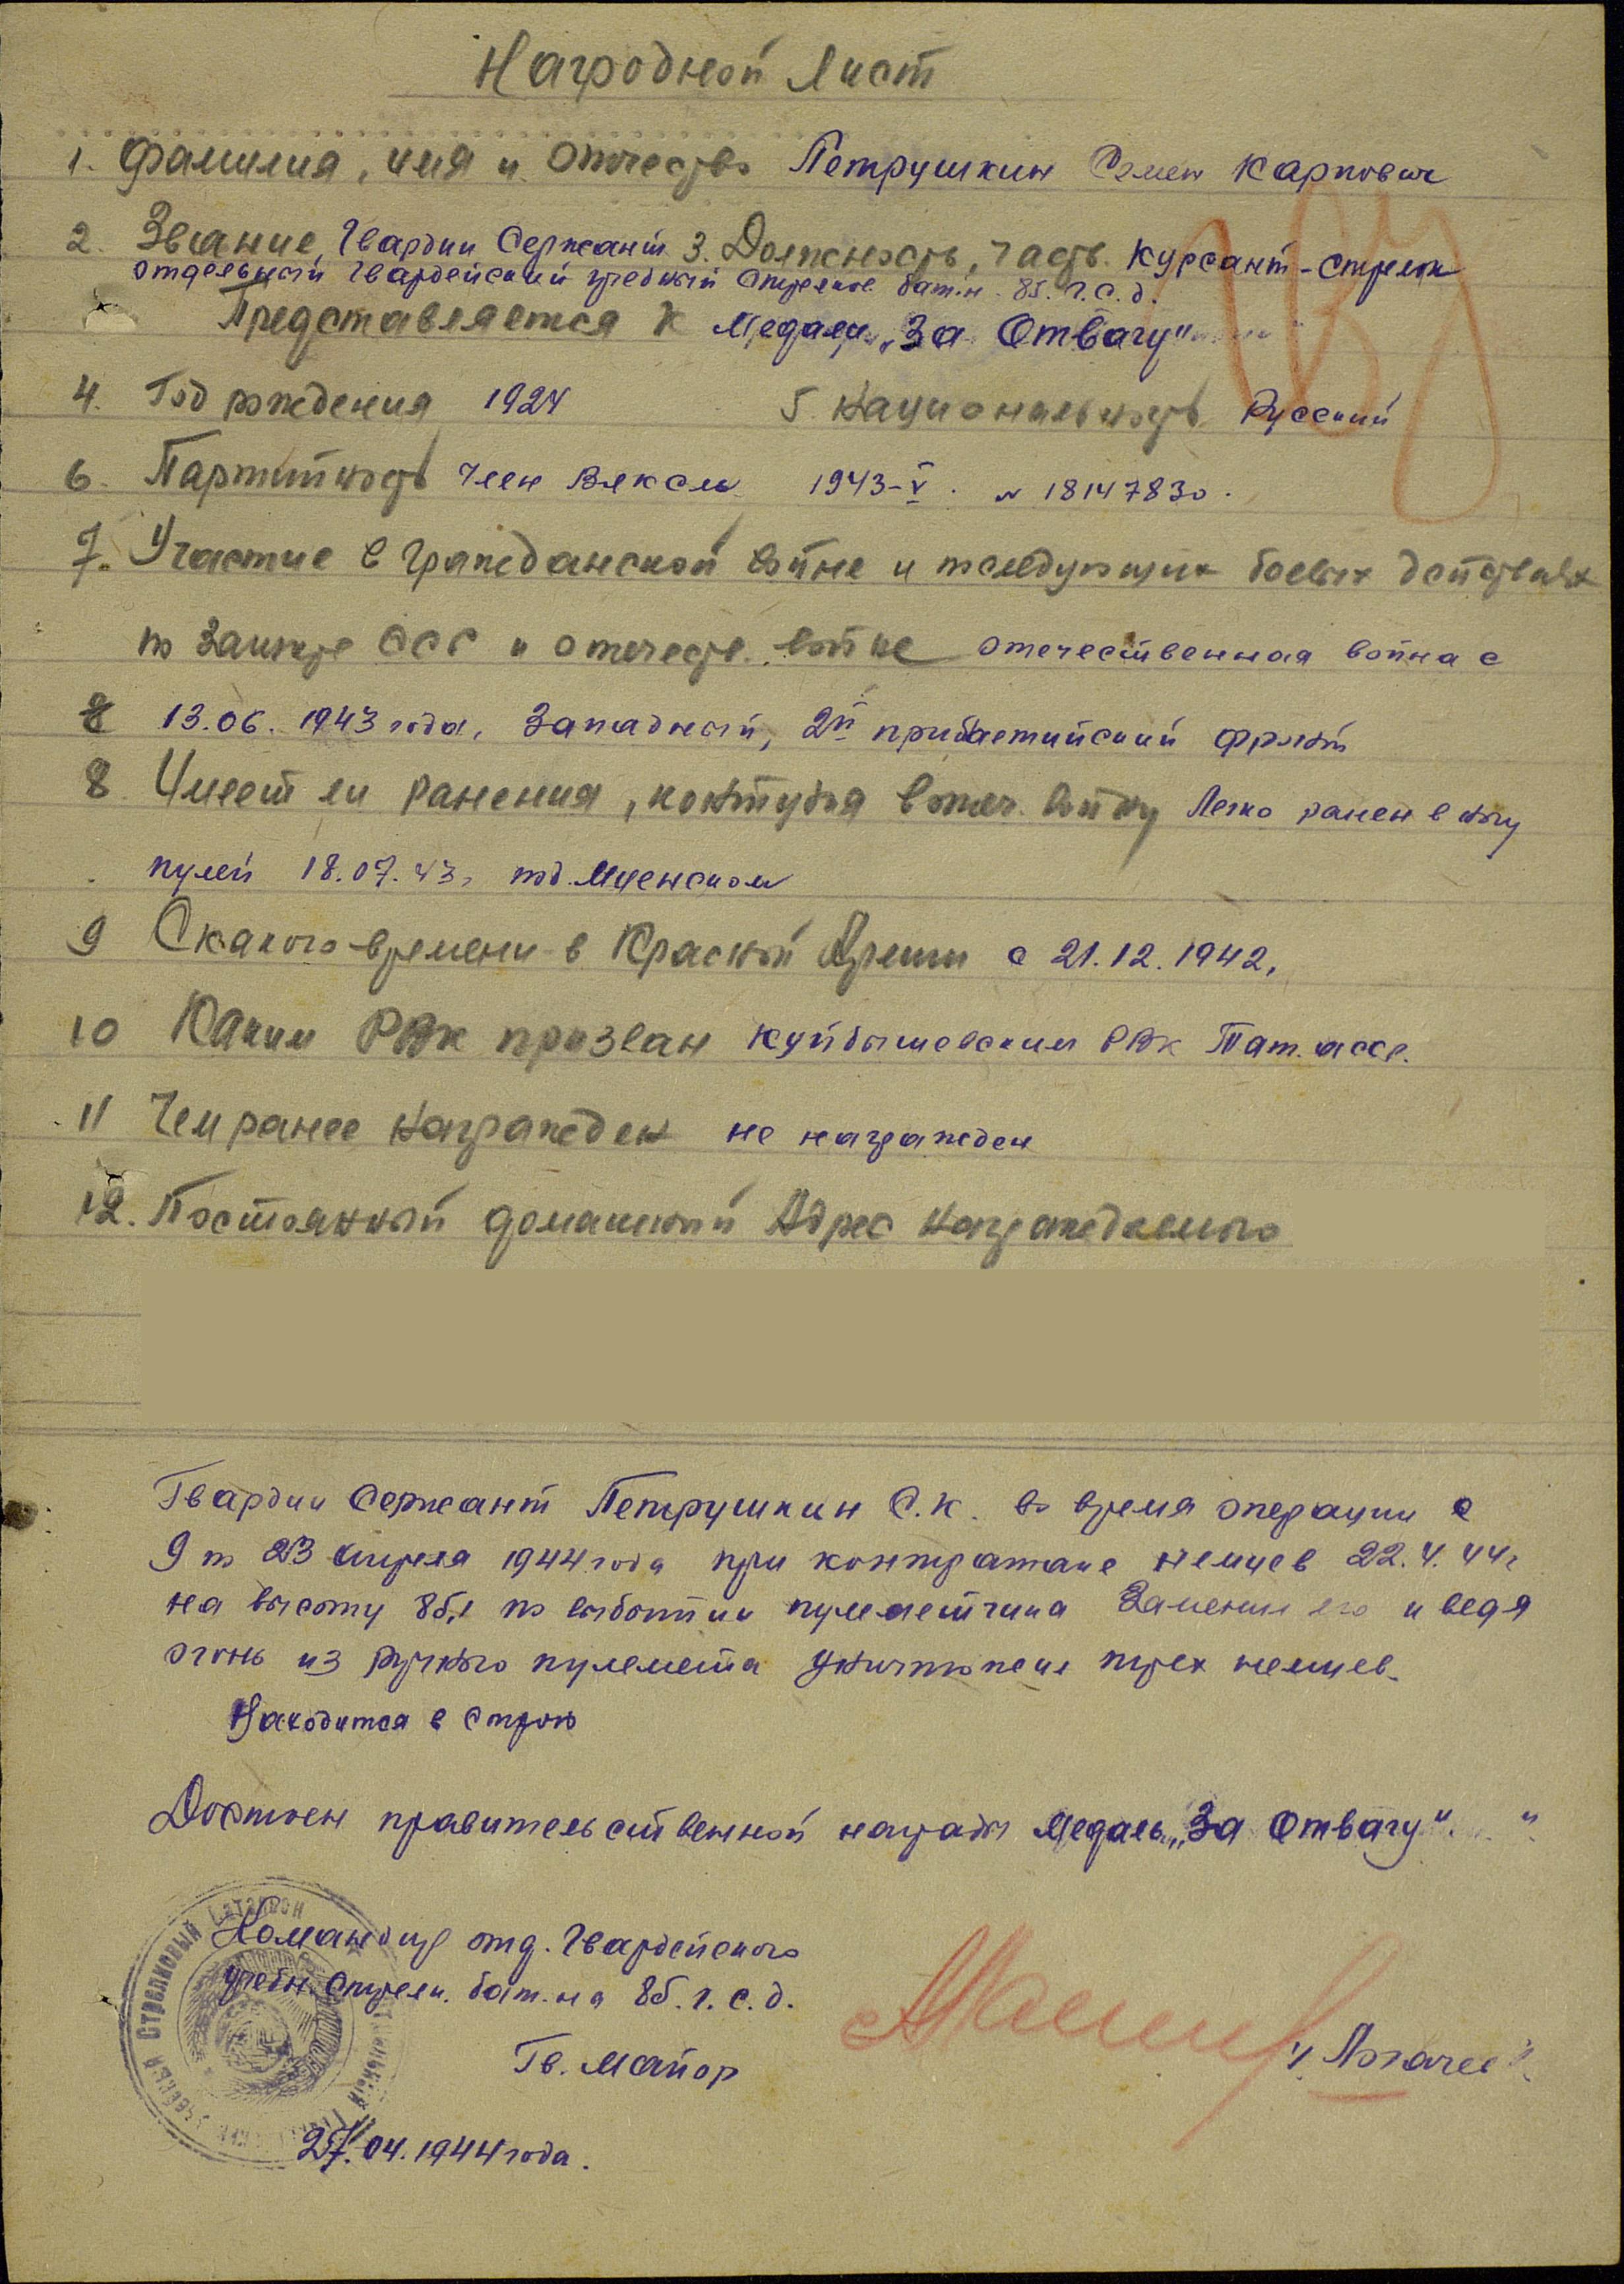 Наградной Лист
1. Фамилия, имя и отчество Петрушкин Семен Карпович
2. Звание Гвардии Сержант 3. Должность, часть Курсант-стрелок
отдельный Гвардейский учебный стрелков. бат.н. 85. г.с.д.
Представляется к Медали „За Отвагу"
4. Год рождения 1924 5. Национальность Русский
6. Партийность член Влксм 1943-V. № 18147830.
7. Участие в гражданской войне и последующих боевых действиях
по защите СССР и отечеств. войне отечественная война с
8 13.06.1943 года, Западный, 2й прибалтийский фронт
8 Имеет ли ранения, контузия в отеч. войну Легко ранен в ногу
пулей 18.07.43г под Мценском
9 С какого времени в Красной Армии с 21.12.1942.
10 Каким РВк призван Куйбышевским РВк Тат. асср.
11 Чем ранее награжден не награжден
12. Постоянный домашний Адрес награждаемого
Гвардии Сержант Петрушкин С.К. во время операции с
9 по 23 апреля 1944 года при контратаке немцев 22.4.44г
на высоту 85,1 по выбытии пулеметчика Заменил его и ведя
огонь из ручного пулемета уничтожил трех немцев.
Находится в строю
Достоен правительственной награды Медаль „За Отвагу".
Командир отд. Гвардейского
учебн. стрелк. бат.на 85. г. с. д.
Гв. Майор
27.04.1944 года.
Стрелковый Батальон